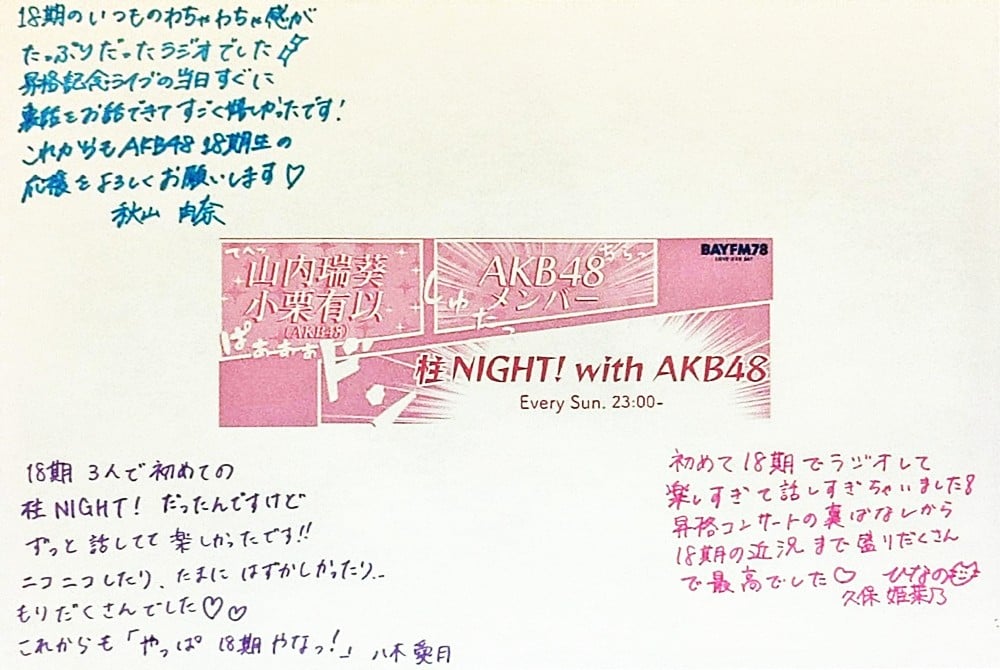 18期のいつものわちゃわちゃ感が
たっぷりだったラジオでした
昇格記念ライブの当日すぐに
裏話をお話できてすごく嬉しかったです!
これからもAKB48 18期生の
応援をよろしくお願いします♡
秋山 由奈
てへっ
山内瑞葵
小栗有以
(AKB48)
ぱぁぁぁぁ
AKB48
メンバー
きらっ
しゅたっ
BAYFM78
ド
柱NIGHT! with AKB48
Every Sun. 23:00-
18期 3人で初めての
柱NIGHT! だったんですけど
ずっと話してて楽しかったです!!
ニコニコしたり、たまにはずかしかったり...
もりだくさんでした♡♡
これからも「やっぱ 18期やなっ!」 八木愛月
初めて18期でラジオして
楽しすぎて話しすぎちゃいました
昇格コンサートの裏ばなしから
18期の近況まで盛りだくさん
で最高でした♡ ひなの
久保 姫菜乃